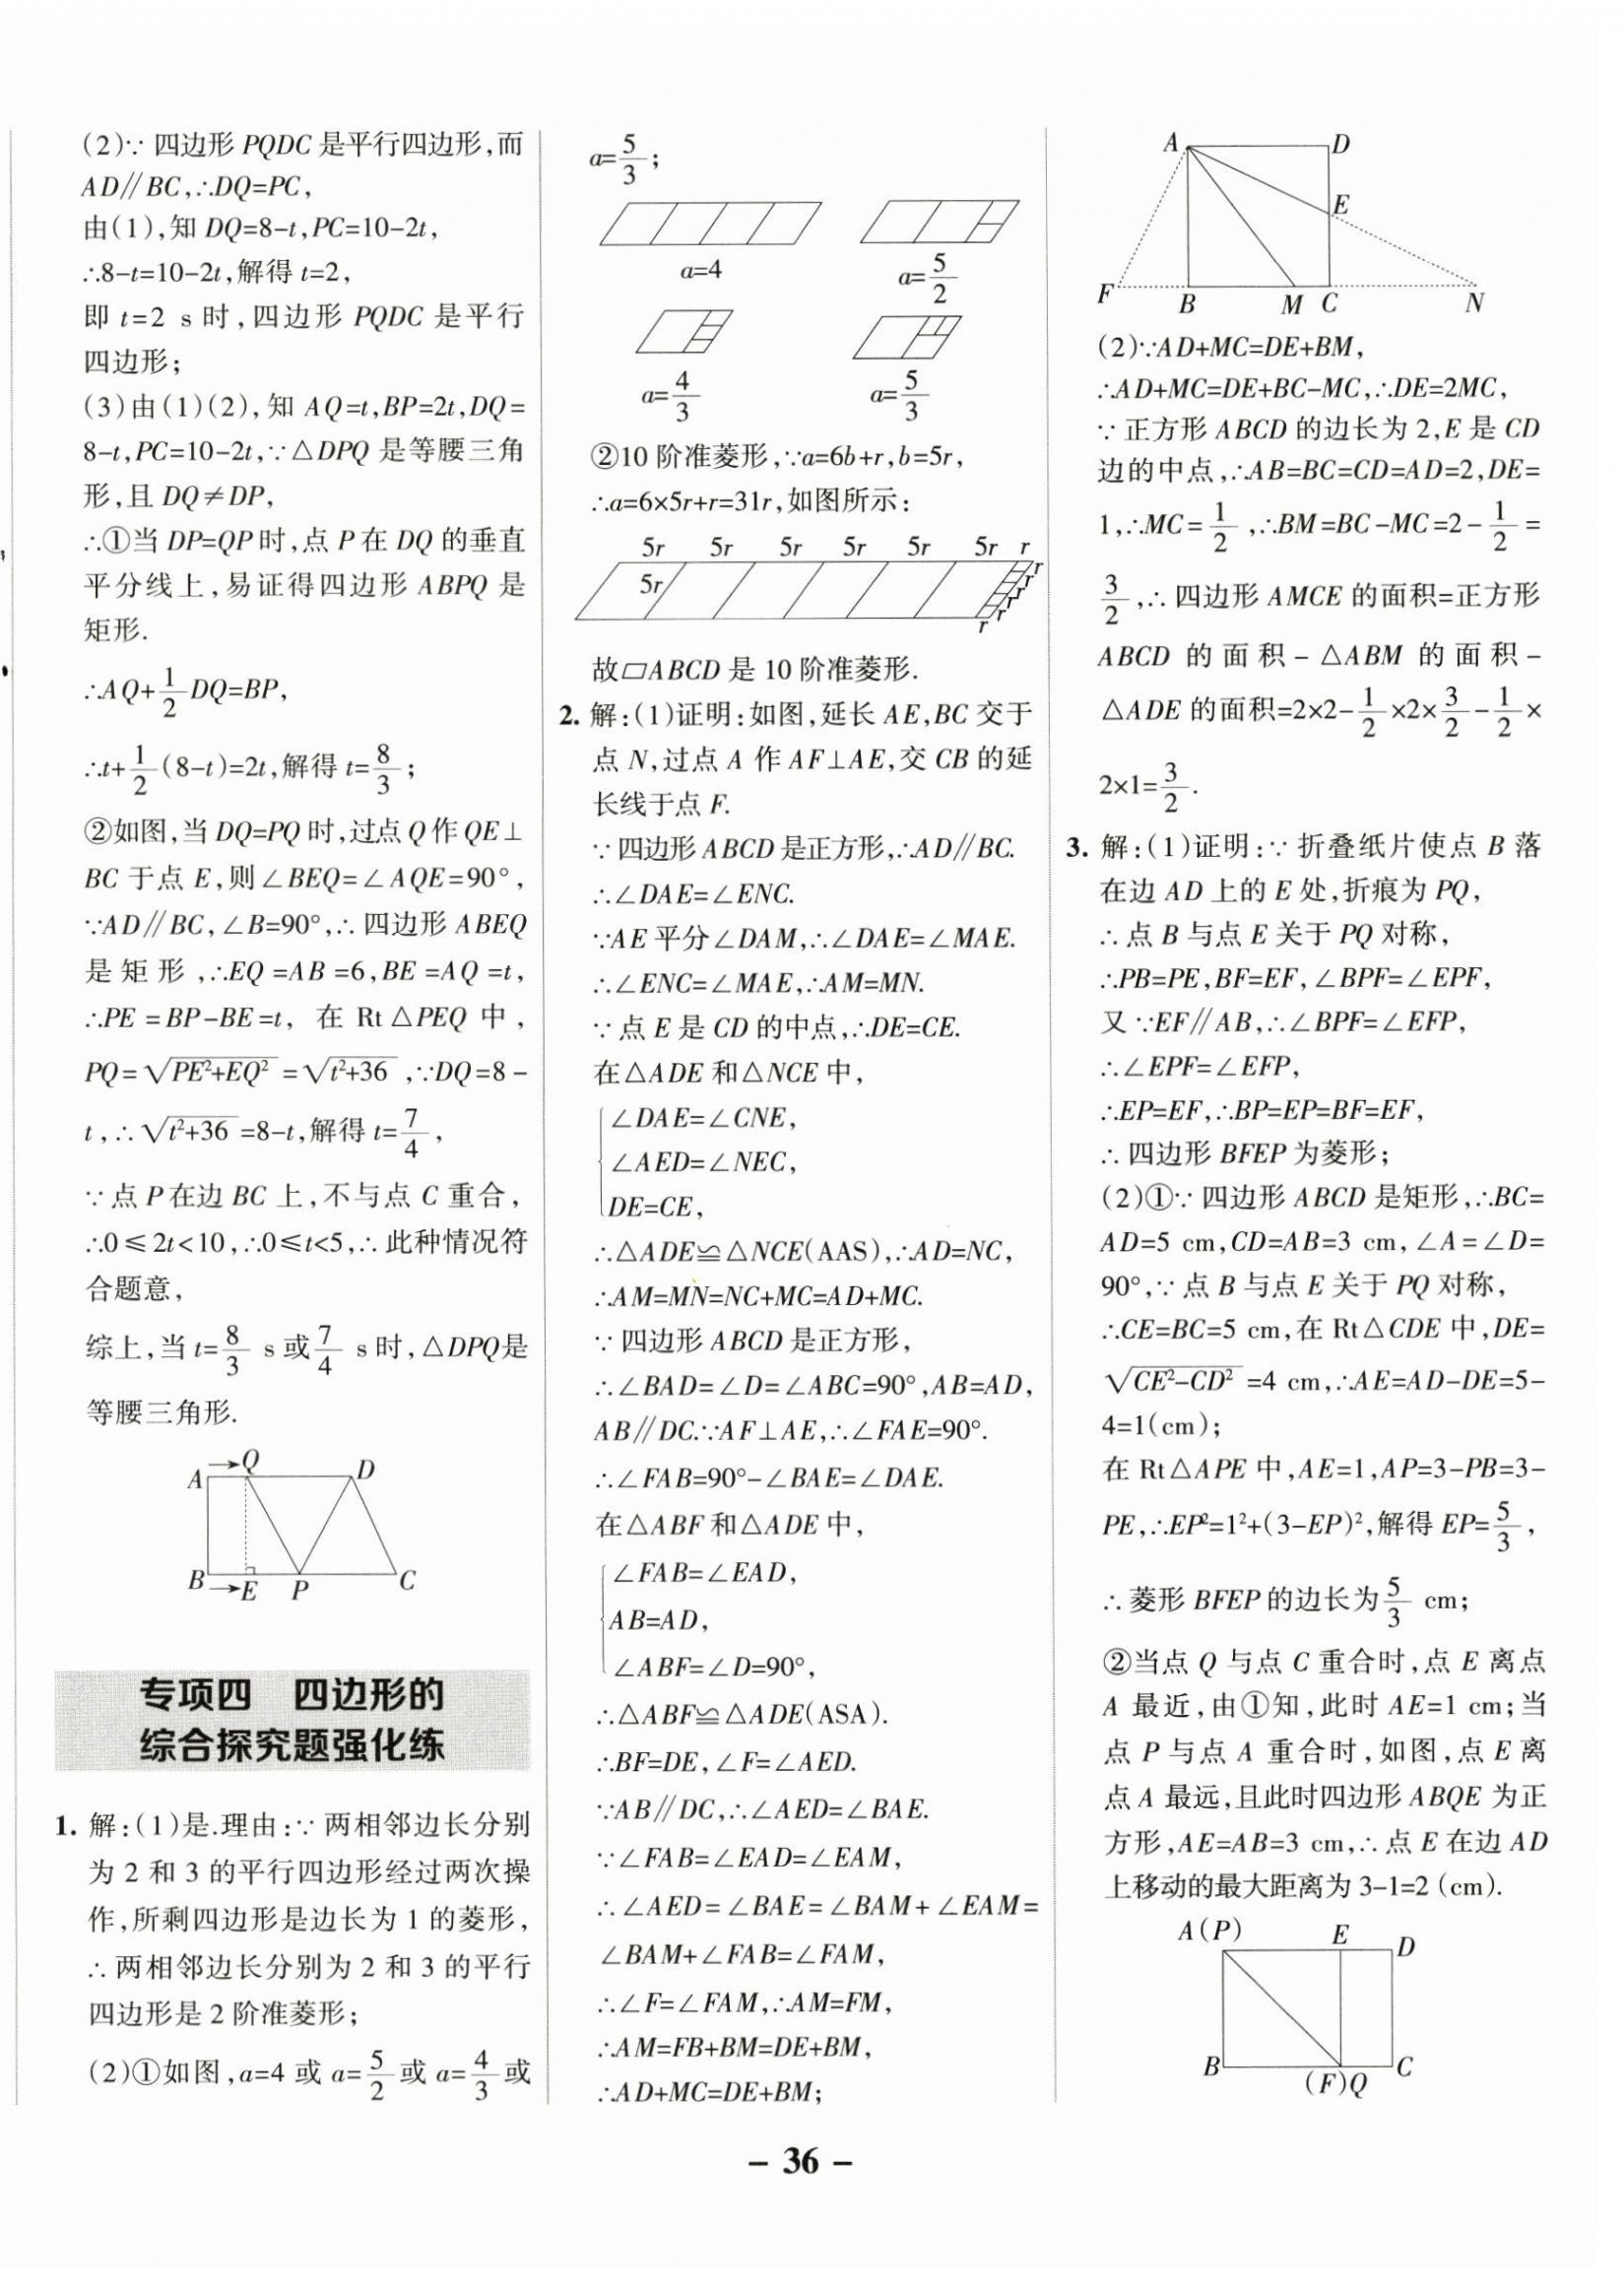 (2)∵ 四边形 PQDC 是平行四边形,而
AD∥BC,∴DQ=PC,
由(1),知 DQ=8-t,PC=10-2t,
∴8-t=10-2t,解得 t=2,
即 t=2 s 时,四边形 PQDC 是平行
四边形;
(3)由(1)(2),知 AQ=t,BP=2t,DQ=
8-t,PC=10-2t,∵△DPQ 是等腰三角
形,且 DQ≠DP,
∴①当 DP=QP 时,点 P 在 DQ 的垂直
平分线上,易证得四边形 ABPQ 是
矩形.
∴AQ+1/2DQ=BP,
∴t+1/2(8-t)=2t,解得 t=8/3;
②如图,当 DQ=PQ 时,过点 Q 作 QE⊥
BC 于点 E,则∠BEQ=∠AQE=90°,
∵AD∥BC,∠B=90°,∴四边形 ABEQ
是矩形,∴EQ=AB=6,BE=AQ=t,
∴PE=BP-BE=t, 在 Rt△PEQ 中,
PQ=√(PE²+EQ²)=√(t²+36),∵DQ=8-
t,∴√(t²+36)=8-t,解得 t=7/4,
∵点 P 在边 BC 上,不与点 C 重合,
∴0≤2t<10,∴0≤t<5,∴此种情况符
合题意,
综上,当 t=8/3 s 或 7/4 s 时,△DPQ 是
等腰三角形.
A Q D
B E P C
专项四 四边形的
综合探究题强化练
1. 解:(1)是.理由:∵两相邻边长分别
为 2 和 3 的平行四边形经过两次操
作,所剩四边形是边长为 1 的菱形,
∴两相邻边长分别为 2 和 3 的平行
四边形是 2 阶准菱形;
(2)①如图,a=4 或 a=5/2 或 a=4/3 或
a=5/3;
a=4 a=5/2
a=4/3 a=5/3
②10 阶准菱形,∵a=6b+r,b=5r,
∴a=6×5r+r=31r,如图所示:
5r 5r 5r 5r 5r 5r r
5r r r r r r
故▱ABCD 是 10 阶准菱形.
2. 解:(1)证明:如图,延长 AE,BC 交于
点 N,过点 A 作 AF⊥AE,交 CB 的延
长线于点 F.
∵四边形 ABCD 是正方形,∴AD∥BC.
∴∠DAE=∠ENC.
∵AE 平分∠DAM,∴∠DAE=∠MAE.
∴∠ENC=∠MAE,∴AM=MN.
∵点 E 是 CD 的中点,∴DE=CE.
在△ADE 和△NCE 中,
∠DAE=∠CNE,
∠AED=∠NEC,
DE=CE,
∴△ADE≌△NCE(AAS),∴AD=NC,
∴AM=MN=NC+MC=AD+MC.
∵四边形 ABCD 是正方形,
∴∠BAD=∠D=∠ABC=90°,AB=AD,
AB∥DC.∵AF⊥AE,∴∠FAE=90°.
∴∠FAB=90°-∠BAE=∠DAE.
在△ABF 和△ADE 中,
∠FAB=∠EAD,
AB=AD,
∠ABF=∠D=90°,
∴△ABF≌△ADE(ASA).
∴BF=DE,∠F=∠AED.
∵AB∥DC,∴∠AED=∠BAE.
∵∠FAB=∠EAD=∠EAM,
∴∠AED=∠BAE=∠BAM+∠EAM=
∠BAM+∠FAB=∠FAM,
∴∠F=∠FAM,∴AM=FM,
∴AM=FB+BM=DE+BM,
∴AD+MC=DE+BM;
A D
E
F B M C N
(2)∵AD+MC=DE+BM,
∴AD+MC=DE+BC-MC,∴DE=2MC,
∵正方形 ABCD 的边长为 2,E 是 CD
边的中点,∴AB=BC=CD=AD=2,DE=
1,∴MC=1/2,∴BM=BC-MC=2-1/2=
3/2,∴四边形 AMCE 的面积=正方形
ABCD 的面积-△ABM 的面积-
△ADE 的面积=2×2-1/2×2×3/2-1/2×
2×1=3/2.
3. 解:(1)证明:∵折叠纸片使点 B 落
在边 AD 上的 E 处,折痕为 PQ,
∴点 B 与点 E 关于 PQ 对称,
∴PB=PE,BF=EF,∠BPF=∠EPF,
又∵EF∥AB,∴∠BPF=∠EFP,
∴∠EPF=∠EFP,
∴EP=EF,∴BP=EP=BF=EF,
∴四边形 BFEP 为菱形;
(2)①∵四边形 ABCD 是矩形,∴BC=
AD=5 cm,CD=AB=3 cm,∠A=∠D=
90°,∵点 B 与点 E 关于 PQ 对称,
∴CE=BC=5 cm,在 Rt△CDE 中,DE=
√(CE²-CD²)=4 cm,∴AE=AD-DE=5-
4=1(cm);
在 Rt△APE 中,AE=1,AP=3-PB=3-
PE,∴EP²=1²+(3-EP)²,解得 EP=5/3,
∴菱形 BFEP 的边长为 5/3 cm;
②当点 Q 与点 C 重合时,点 E 离点
A 最近,由①知,此时 AE=1 cm;当
点 P 与点 A 重合时,如图,点 E 离
点 A 最远,且此时四边形 ABQE 为正
方形,AE=AB=3 cm,∴点 E 在边 AD
上移动的最大距离为 3-1=2 (cm).
A(P) E D
B (F)Q C
- 36 -